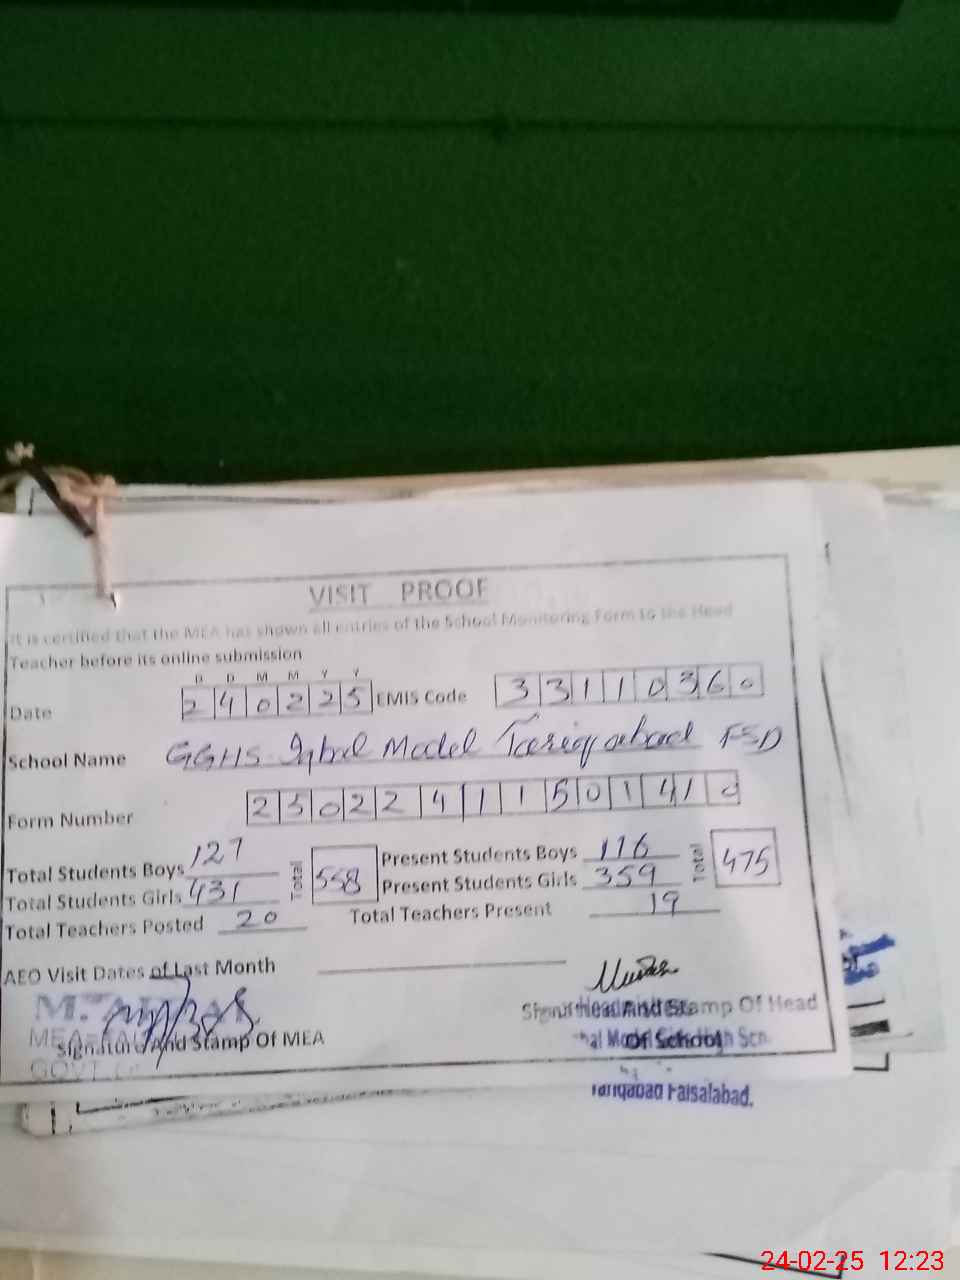 VISIT PROOF
It is certified that the MEA has shown all entries of the School Monitoring Form to the Head
Teacher before its online submission
D D M M Y Y
Date 2 4 0 2 2 5 EMIS Code 3 3 1 1 0 3 6 0
School Name GGHS Iqbal Model Tariqabad FSD
Form Number 2 5 0 2 2 4 1 1 5 0 1 4 1 0
Total Students Boys 127 Total 558 Present Students Boys 116 Total 475
Total Students Girls 431 Present Students Girls 359
Total Teachers Posted 20 Total Teachers Present 19
AEO Visit Dates of Last Month
Signature And Stamp Of MEA
Signature And Stamp Of Head
Of School
MEA
GOVT
Tariqabad Faisalabad.
24-02-25 12:23